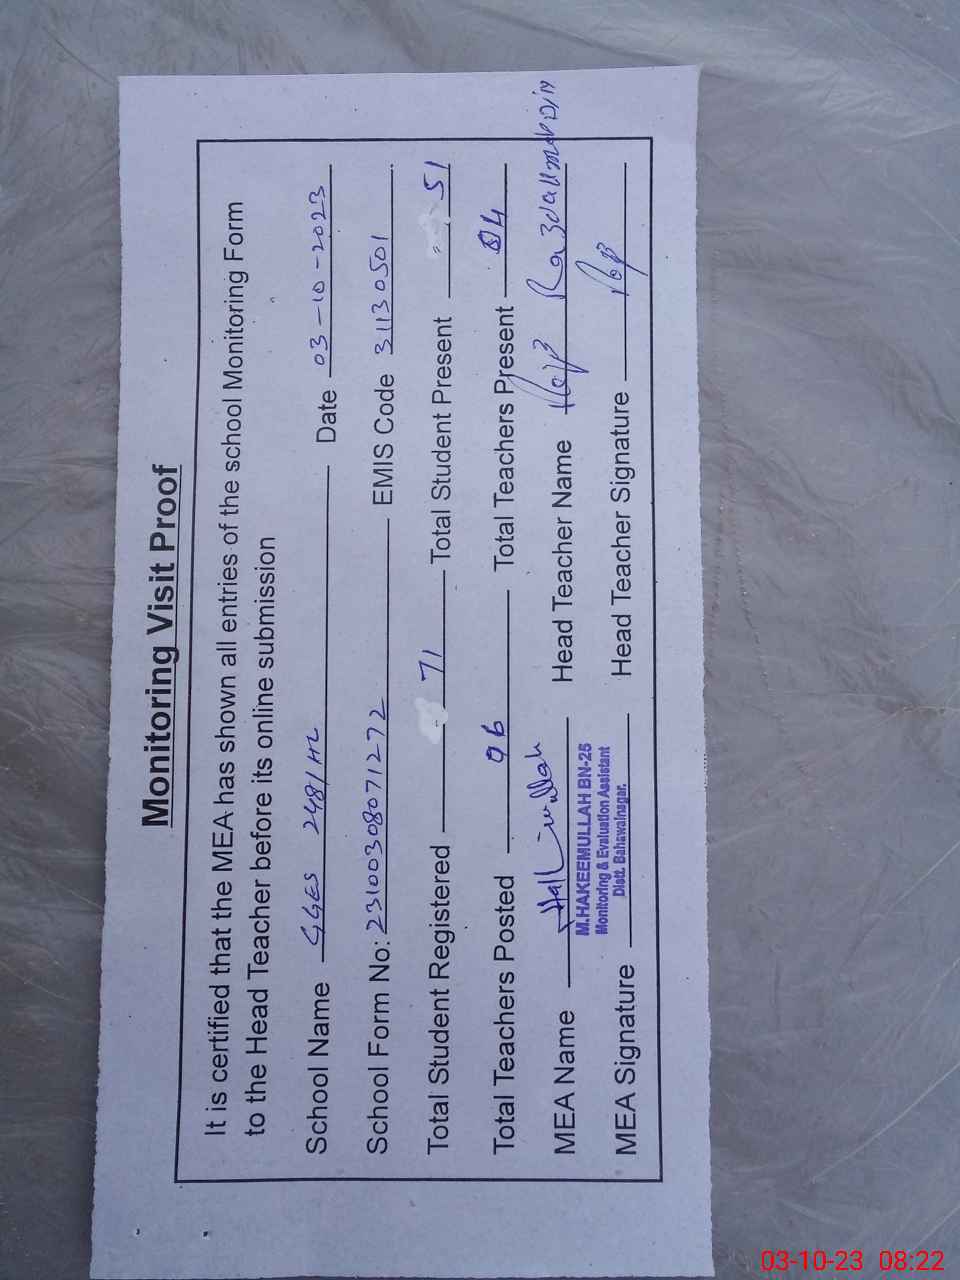 Monitoring Visit Proof
It is certified that the MEA has shown all entries of the school Monitoring Form
to the Head Teacher before its online submission
School Name GGES 248/HL Date 03-10-2023
School Form No: 23100308071272 EMIS Code 31130501
Total Student Registered 71 Total Student Present 51
Total Teachers Posted 06 Total Teachers Present 04
MEA Name Head Teacher Name
M.HAKEEMULLAH BN-25
Monitoring & Evaluation Assistant
Distt. Bahawalnagar.
MEA Signature Head Teacher Signature
03-10-23 08:22